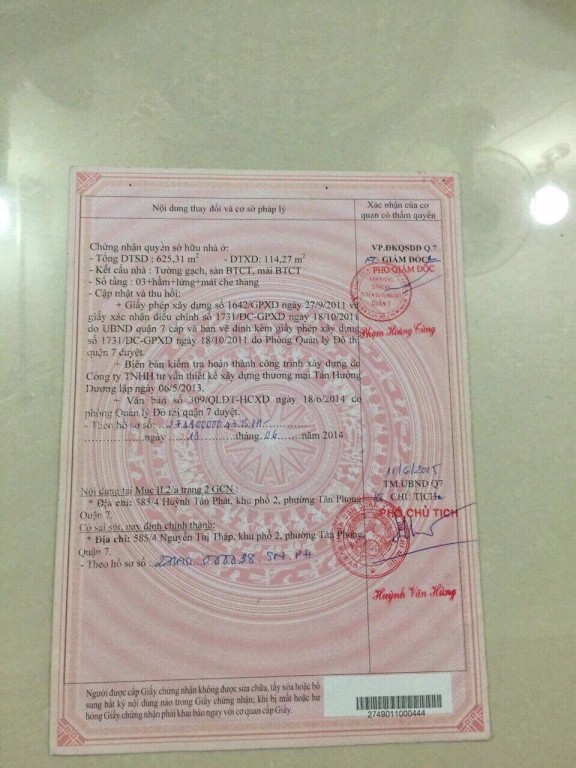 Nội dung thay đổi và cơ sở pháp lý
Xác nhận của cơ
quan có thẩm quyền
Chứng nhận quyền sở hữu nhà ở:
- Tổng DTSD : 625,31 m² - DTXD: 114,27 m²
- Kết cấu nhà : Tường gạch, sàn BTCT, mái BTCT
- Số tầng : 03+hầm+lửng+mái che thang
- Cập nhật và thu hồi:
+ Giấy phép xây dựng số 1642/GPXD ngày 27/9/2011 và
giấy xác nhận điều chỉnh số 1731/ĐC-GPXD ngày 18/10/2011
do UBND quận 7 cấp và bản vẽ đính kèm giấy phép xây dựng
số 1731/ĐC-GPXD ngày 18/10/2011 do Phòng Quản lý Đô thị
quận 7 duyệt.
+ Biên bản kiểm tra hoàn thành công trình xây dựng do
Công ty TNHH tư vấn thiết kế xây dựng thương mại Tân Hướng
Dương lập ngày 06/5/2013.
+ Văn bản số 309/QLĐT-HCXD ngày 18/6/2014 do
phòng Quản lý Đô thị quận 7 duyệt.
- Theo hồ sơ số:
ngày 19 tháng 06 năm 2014
VP.ĐKQSDĐ Q.7
GIÁM ĐỐC
PHÓ GIÁM ĐỐC
QUẬN 7
Phạm Hoàng Cùng
Nội dung tại Mục II.2/a trang 2 GCN :
* Địa chỉ: 585/4 Huỳnh Tấn Phát, khu phố 2, phường Tân Phong
Quận 7.
Có sai sót, nay đính chính thành:
* Địa chỉ: 585/4 Nguyễn Thị Thập, khu phố 2, phường Tân Phong
Quận 7.
- Theo hồ sơ số :
11/6/2015
TM.UBND Q7
CHỦ TỊCH
PHÓ CHỦ TỊCH
Huỳnh Văn Hùng
Người được cấp Giấy chứng nhận không được sửa chữa, tẩy xóa hoặc bổ
sung bất kỳ nội dung nào trong Giấy chứng nhận; khi bị mất hoặc hư
hỏng Giấy chứng nhận phải khai báo ngay với cơ quan cấp Giấy.
2749011000444